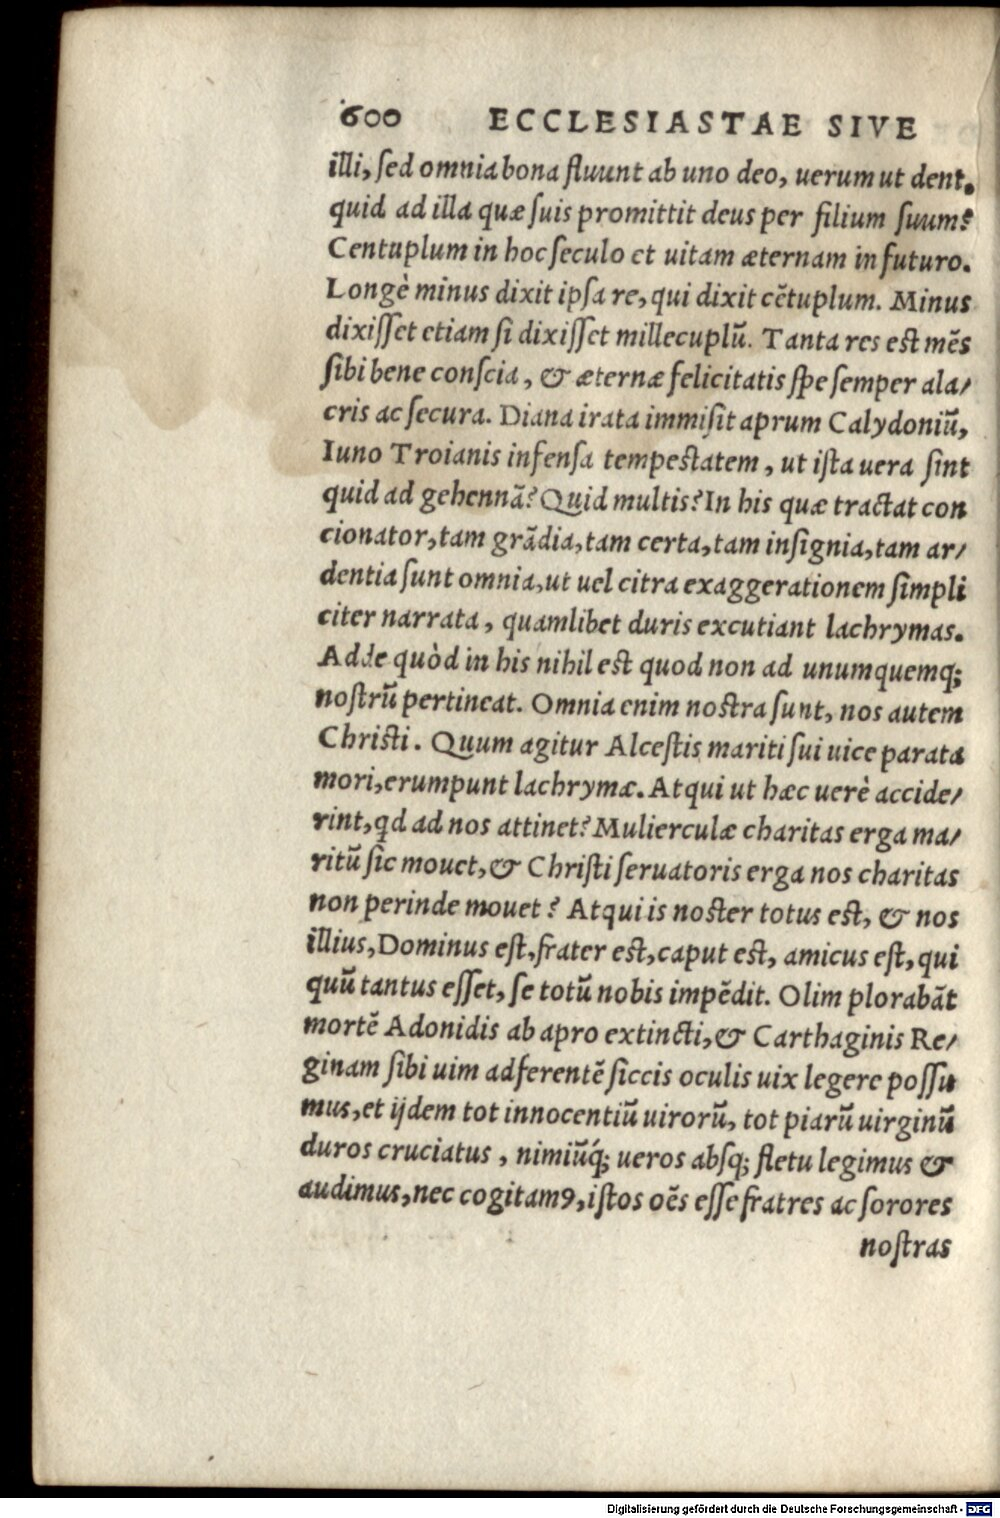 600 ECCLESIASTAE SIVE
illi, ſed omnia bona fluunt ab uno deo, uerum ut dent.
quid ad illa quæ ſuis promittit deus per filium ſuum?
Centuplum in hoc ſeculo et uitam æternam in futuro.
Longè minus dixit ipſa re, qui dixit cẽtuplum. Minus
dixiſſet etiam ſi dixiſſet millecuplũ. Tanta res est mẽs
ſibi bene conſcia, & æternæ felicitatis ſpe ſemper ala/
cris ac ſecura. Diana irata immiſit aprum Calydoniũ,
Iuno Troianis infenſa tempestatem, ut iſta uera ſint
quid ad gehennã? Quid multis? In his quæ tractat con
cionator, tam grãdia, tam certa, tam inſignia, tam ar/
dentia ſunt omnia, ut uel citra exaggerationem ſimpli
citer narrata, quamlibet duris excutiant lachrymas.
Adde quòd in his nihil est quod non ad unumquemq;
noſtrũ pertineat. Omnia enim nostra ſunt, nos autem
Christi. Quum agitur Alceſtis mariti ſui uice parata
mori, erumpunt lachrymæ. Atqui ut hæc uerè accide/
rint, qd ad nos attinet? Mulierculæ charitas erga ma/
ritũ ſic mouet, & Chriſti ſeruatoris erga nos charitas
non perinde mouet? Atqui is noster totus est, & nos
illius, Dominus eſt, frater est, caput est, amicus eſt, qui
quũ tantus eſſet, ſe totũ nobis impẽdit. Olim plorabãt
mortẽ Adonidis ab apro extincti, & Carthaginis Re/
ginam ſibi uim adferentẽ ſiccis oculis uix legere poſſu
mus, et ijdem tot innocentiũ uirorũ, tot piarũ uirginũ
duros cruciatus, nimiũq́; ueros abſq; fletu legimus &
audimus, nec cogitamꝰ, iſtos oẽs eſſe fratres ac ſorores
noſtras
Digitalisierung gefördert durch die Deutsche Forschungsgemeinschaft - DFG